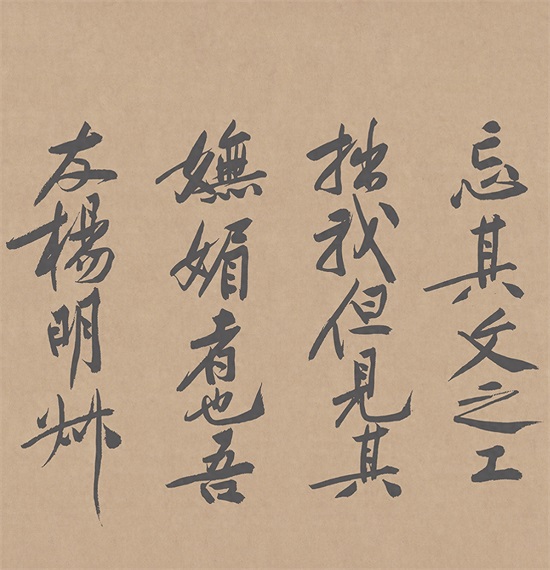 忘其文之工
拙我但見其
嫵媚者也吾
友楊明叔